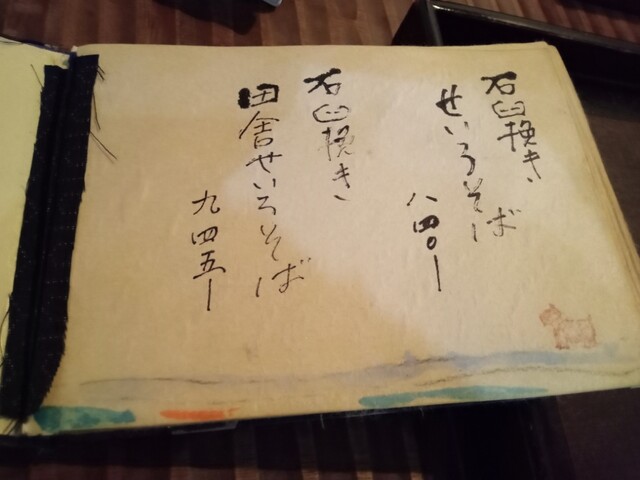 石臼挽き
せいろそば
八四〇ー
石臼挽き
田舎せいろそば
九四五ー